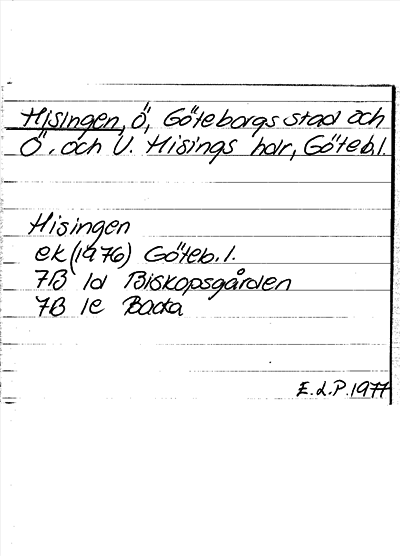 Hisingen, Ö, Göteborgs stad och
Ö. och V. Hisings hdr, Göteb.l.
Hisingen
ek (1976) Göteb. l.
7B 1d Biskopsgården
7B 1e Backa
E.L.P. 1977